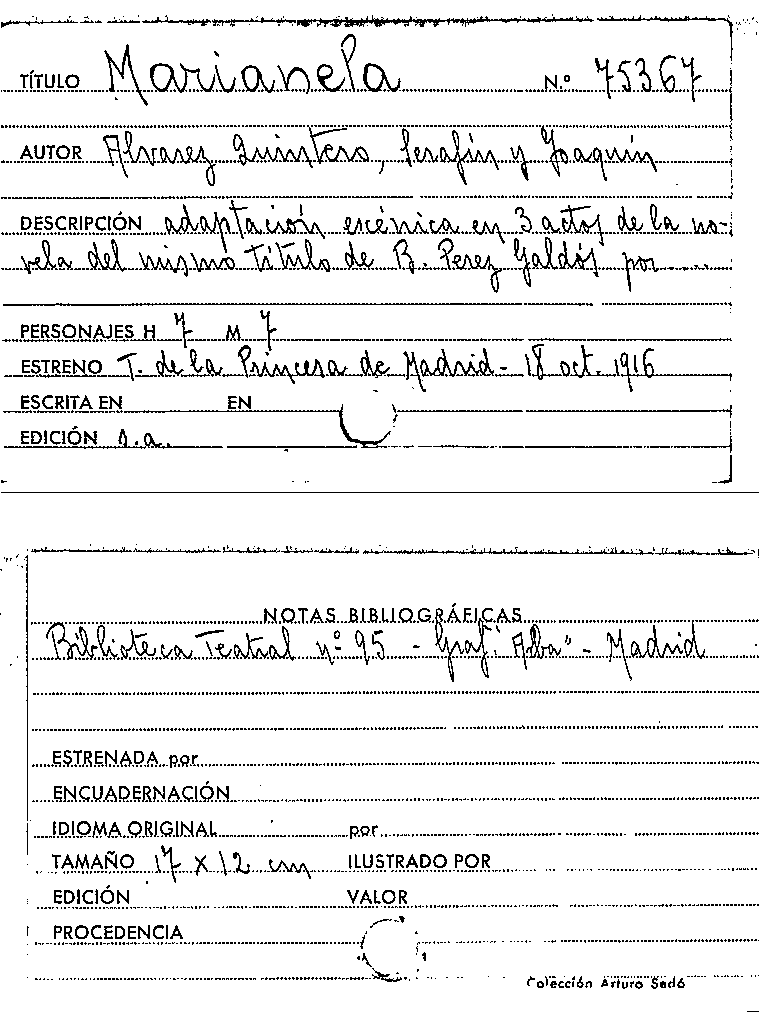 TÍTULO Marianela N.º 75367
AUTOR Alvarez Quintero, Serafín y Joaquín
DESCRIPCIÓN adaptación escénica en 3 actos de la no-
vela del mismo título de B. Perez Galdós por ....
PERSONAJES H 7 M 7
ESTRENO T. de la Princesa de Madrid - 18 oct. 1916
ESCRITA EN EN
EDICIÓN s.a.
NOTAS BIBLIOGRÁFICAS
Biblioteca Teatral nº 95 - Graf. "Alba" - Madrid
ESTRENADA por
ENCUADERNACIÓN
IDIOMA ORIGINAL por
TAMAÑO 17 x 12 cm ILUSTRADO POR
EDICIÓN VALOR
PROCEDENCIA
Colección Arturo Sedó